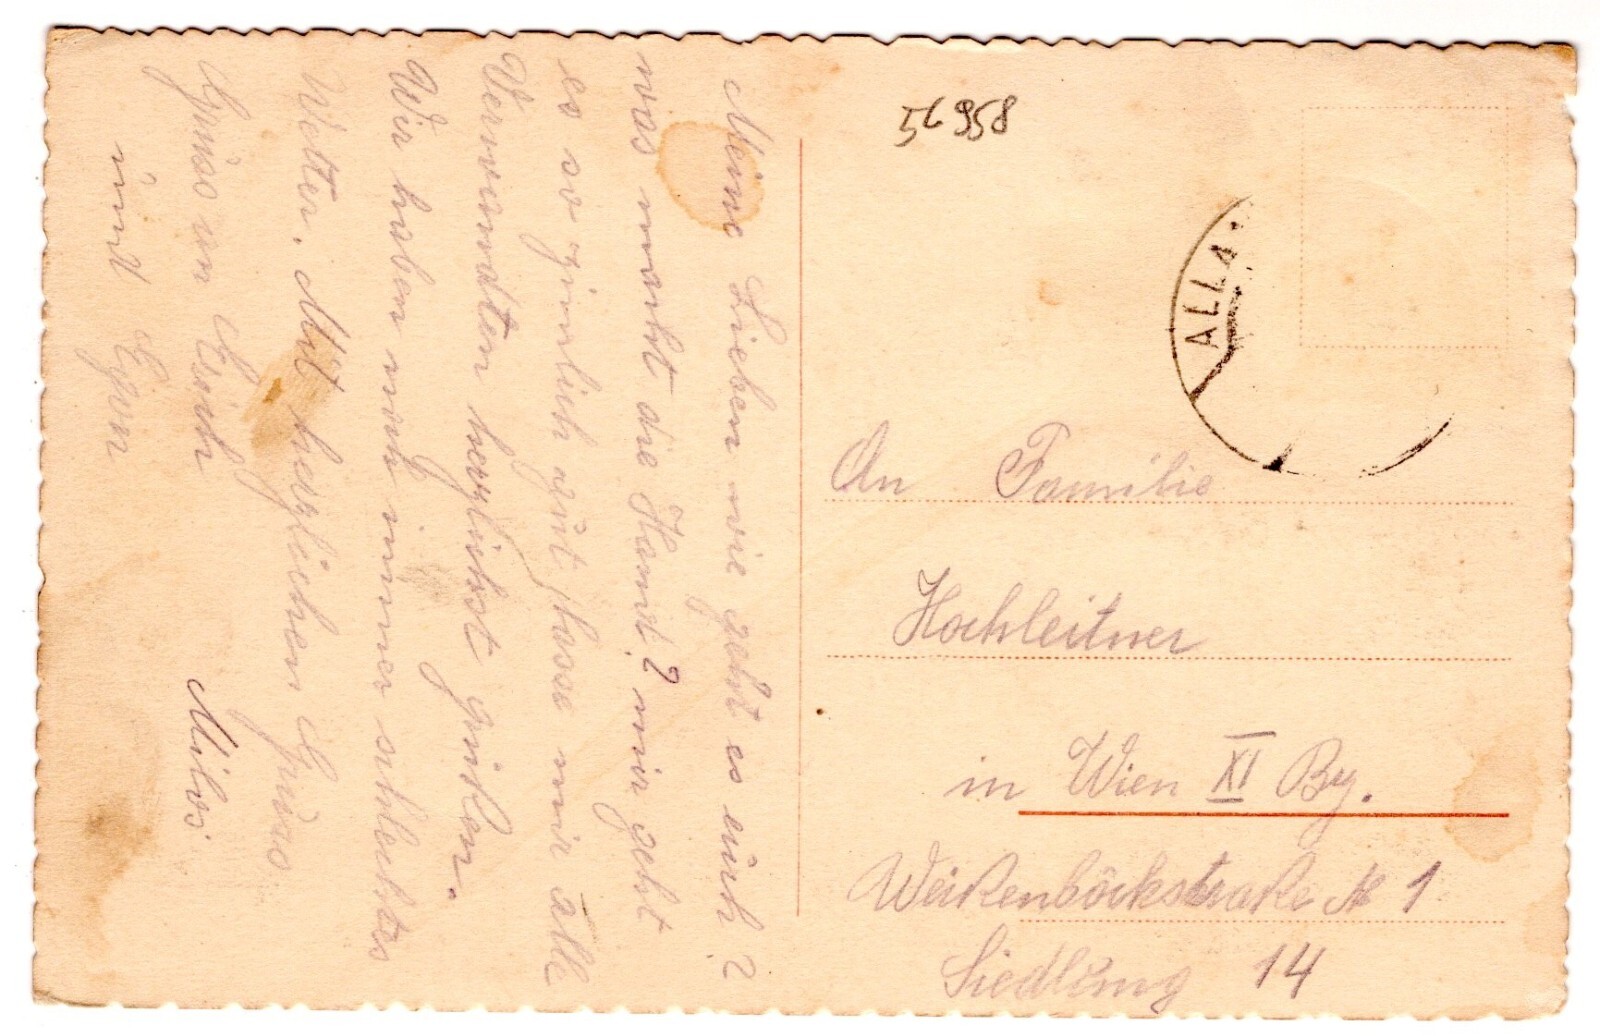 Meine Lieben wie geht es euch?
was macht die Hand? mir geht
es so zimlich gut, lasse mir alle
Verwandten herzlichst grißen.
Wir haben noch immer schlechtes
Wetter. Mit herzlichen Gruss
Miloš
Gruss von Erich
und Egon
56958
ALLA
An Familie
Hochleitner
in Wien XI Bz.
Weißenböckstraße № 1
Siedlung 14